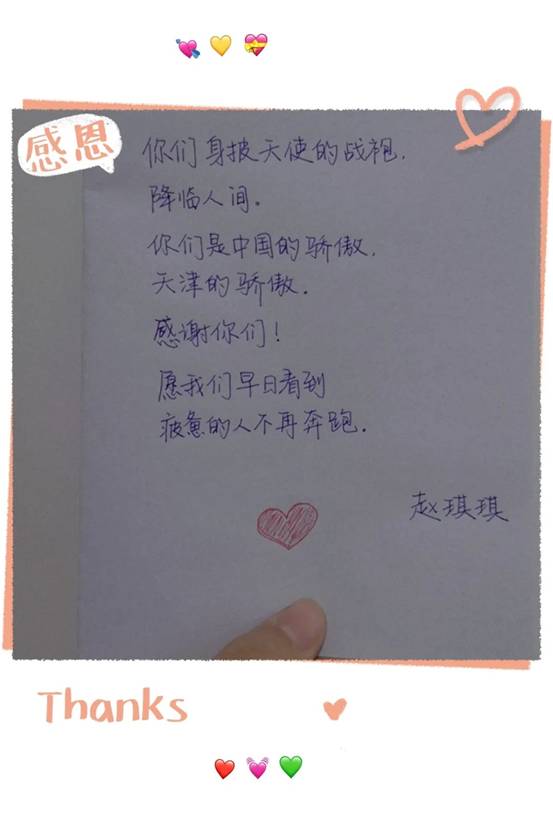 💘💛💝
感恩
你们身披天使的战袍，
降临人间。
你们是中国的骄傲，
天津的骄傲．
感谢你们！
愿我们早日看到
疲惫的人不再奔跑．
赵琪琪
Thanks
❤️💓💚